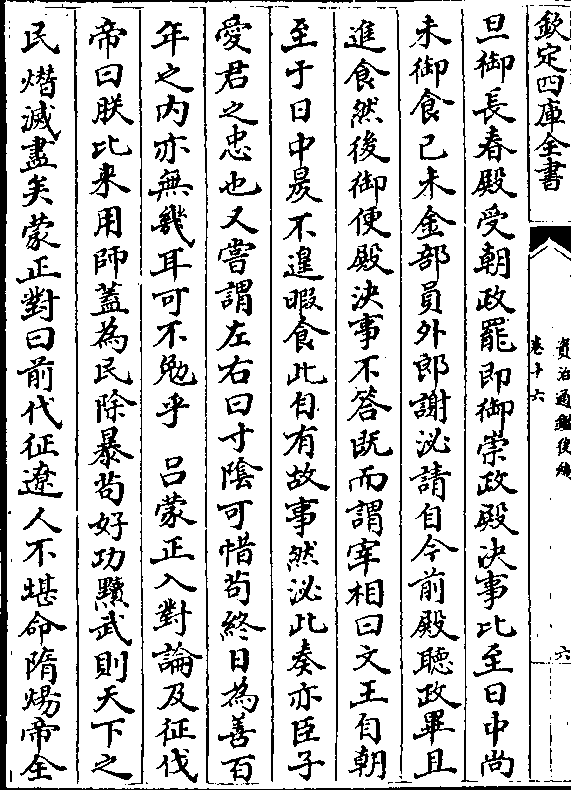 欽定四庫全書
資治通鑑後編
卷十六
六
旦御長春殿受朝政罷即御崇政殿決事比至日中尚
未御食己未金部員外郎謝泌請自今前殿聽政畢且
進食然後御便殿決事不答既而謂宰相曰文王自朝
至于日中昃不遑暇食此自有故事然泌此奏亦臣子
愛君之忠也又嘗謂左右曰寸陰可惜苟終日為善百
年之内亦無幾耳可不勉乎 吕蒙正入對論及征伐
帝曰朕比来用師蓋為民除暴苟好功黷武則天下之
民熸滅盡矣蒙正對曰前代征遼人不堪命隋煬帝全